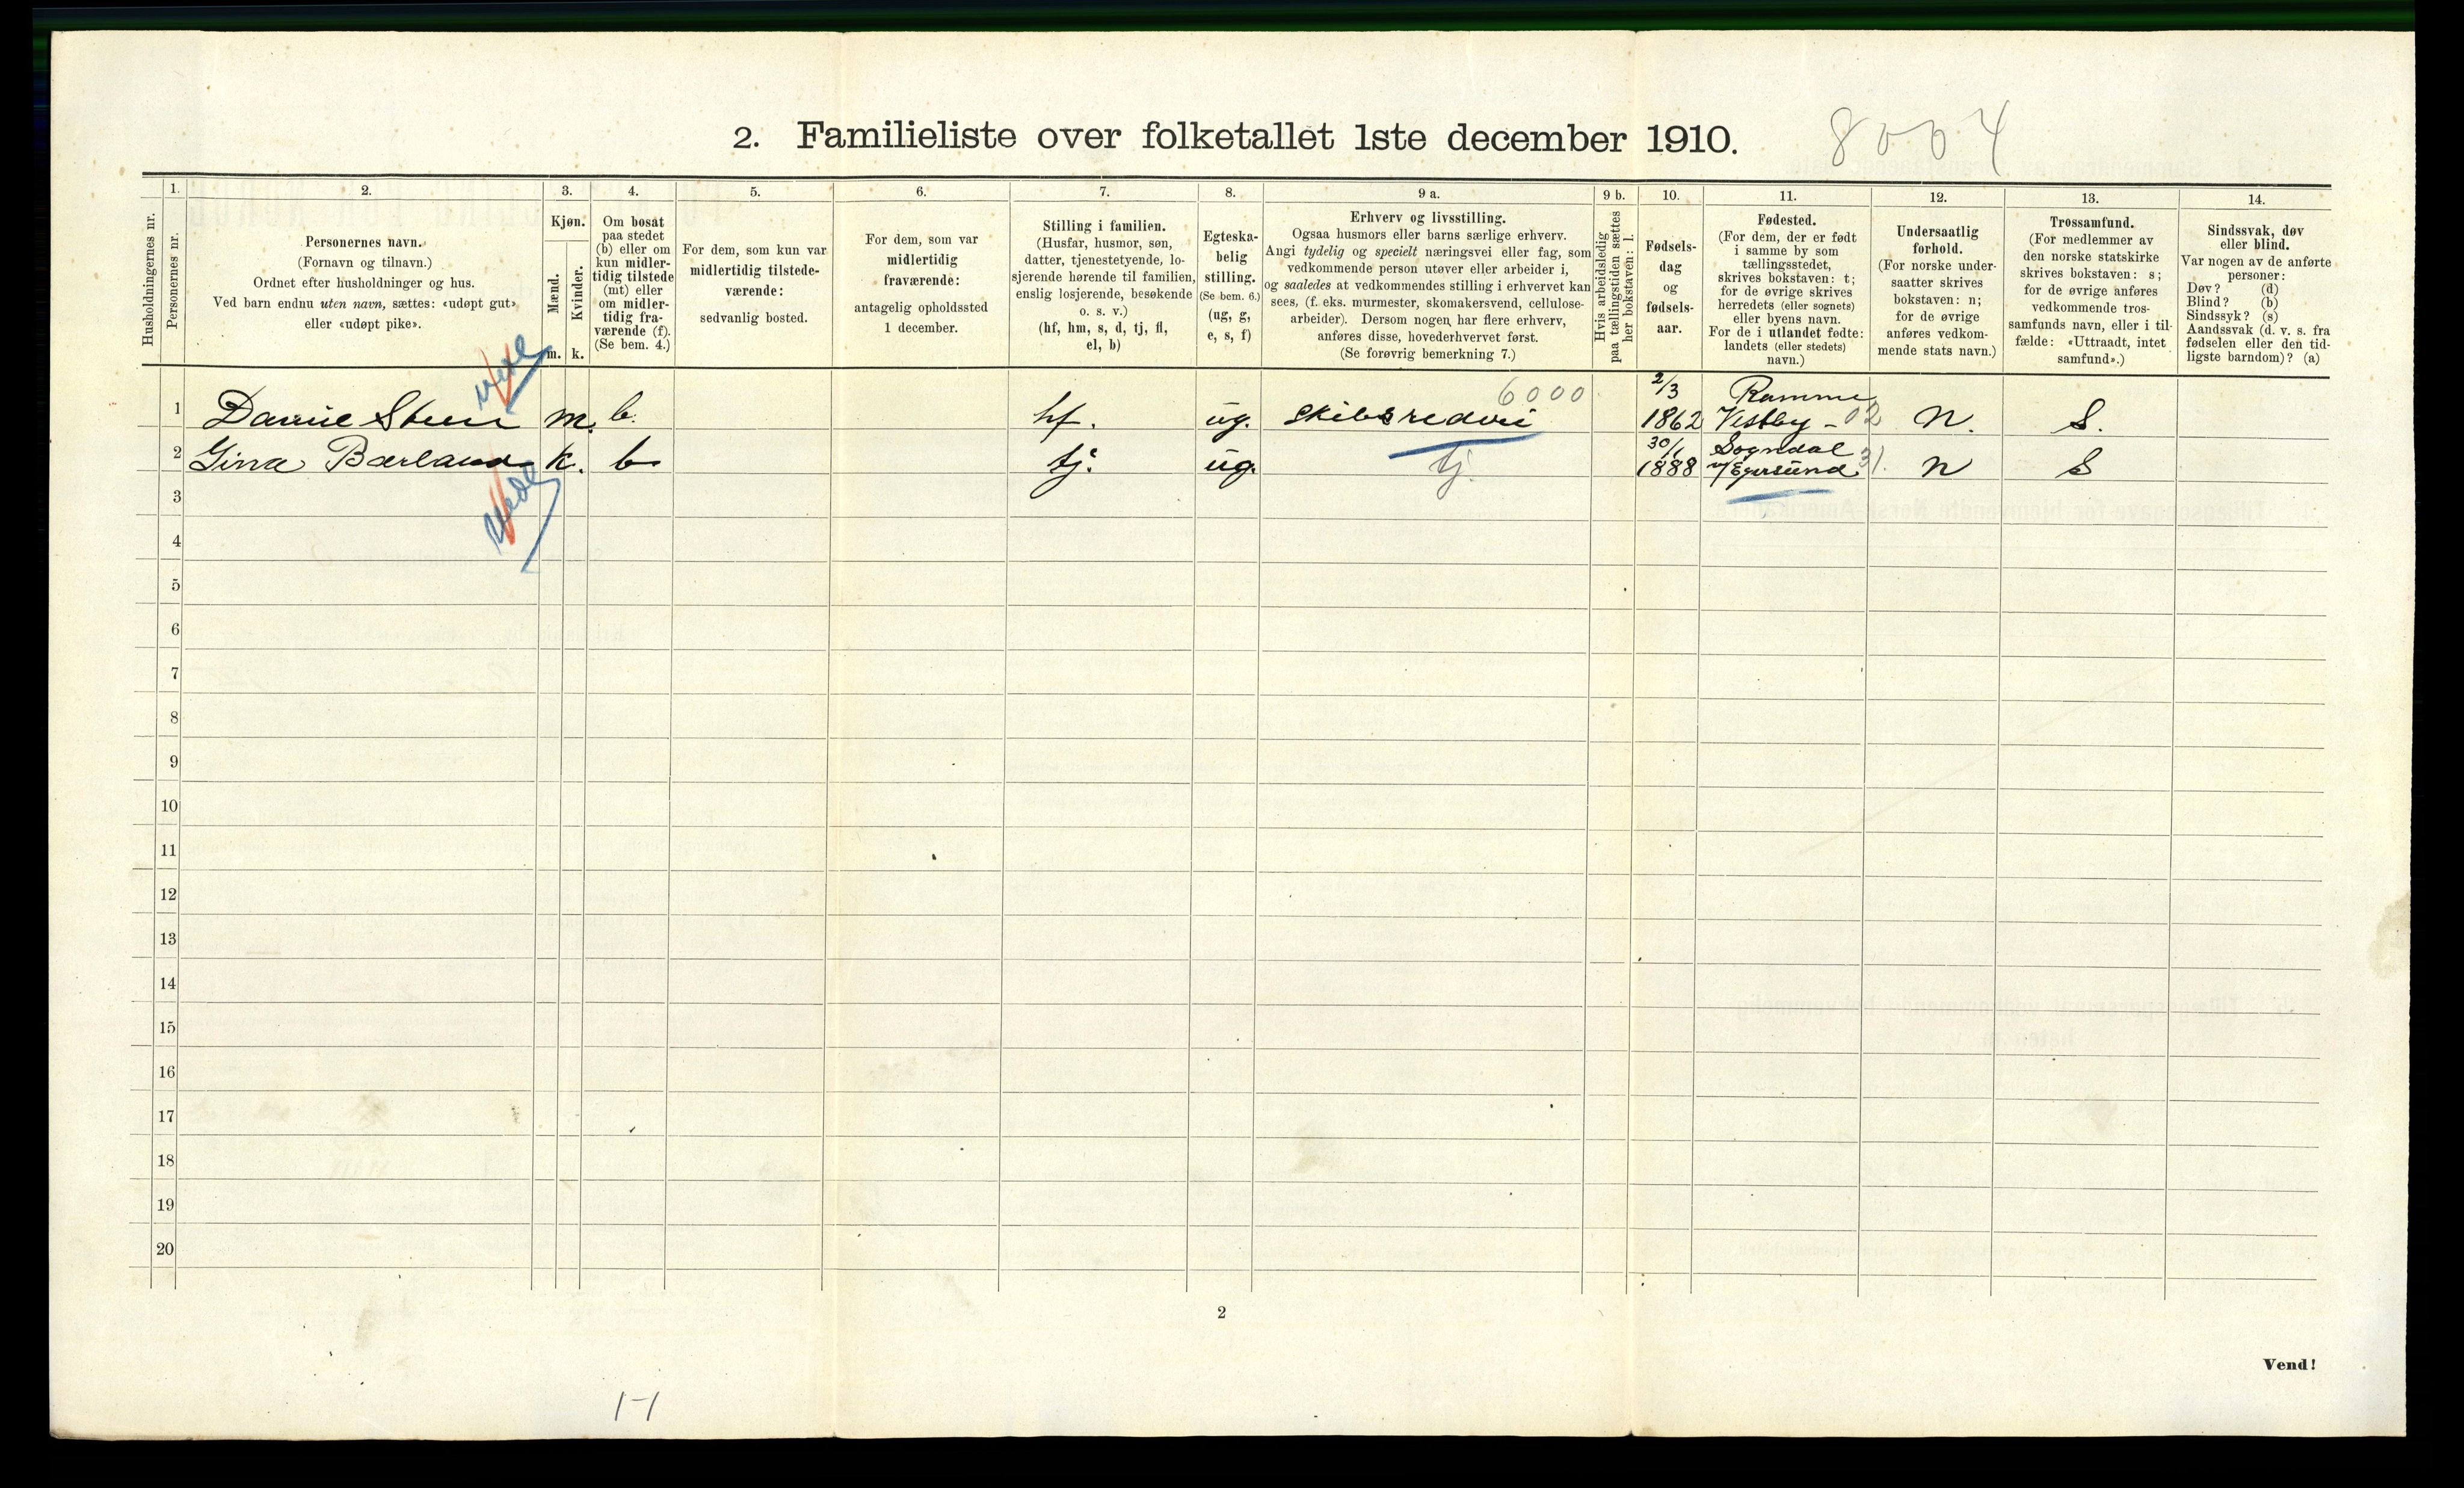 2. Familieliste over folketallet 1ste december 1910.
8004
Husholdningernes nr.
1.
Personernes nr.
2.
Personernes navn.
(Fornavn og tilnavn.)
Ordnet efter husholdninger og hus.
Ved barn endnu uten navn, sættes: «udøpt gut»
eller «udøpt pike».
3.
Kjøn.
Mænd.
Kvinder.
m. k.
4.
Om bosat
paa stedet
(b) eller om
kun midler-
tidig tilstede
(mt) eller
om midler-
tidig fra-
værende (f).
(Se bem. 4.)
5.
For dem, som kun var
midlertidig tilstede-
værende:
sedvanlig bosted.
6.
For dem, som var
midlertidig
fraværende:
antagelig opholdssted
1 december.
7.
Stilling i familien.
(Husfar, husmor, søn,
datter, tjenestetyende, lo-
sjerende hørende til familien,
enslig losjerende, besøkende
o. s. v.)
(hf, hm, s, d, tj, fl,
el, b)
8.
Egteska-
belig
stilling.
(Se bem. 6.)
(ug, g,
e, s, f)
9 a.
Erhverv og livsstilling.
Ogsaa husmors eller barns særlige erhverv.
Angi tydelig og specielt næringsvei eller fag, som
vedkommende person utøver eller arbeider i,
og saaledes at vedkommendes stilling i erhvervet kan
sees, (f. eks. murmester, skomakersvend, cellulose-
arbeider). Dersom nogen har flere erhverv,
anføres disse, hovederhvervet først.
(Se forøvrig bemerkning 7.)
9 b.
Hvis arbeidsledig
paa tællingstiden sættes
her bokstaven: l.
10.
Fødsels-
dag
og
fødsels-
aar.
11.
Fødested.
(For dem, der er født
i samme by som
tællingsstedet,
skrives bokstaven: t;
for de øvrige skrives
herredets (eller sognets)
eller byens navn.
For de i utlandet fødte:
landets (eller stedets)
navn.)
12.
Undersaatlig
forhold.
(For norske under-
saatter skrives
bokstaven: n;
for de øvrige
anføres vedkom-
mende stats navn.)
13.
Trossamfund.
(For medlemmer av
den norske statskirke
skrives bokstaven: s;
for de øvrige anføres
vedkommende tros-
samfunds navn, eller i til-
fælde: «Uttraadt, intet
samfund».)
14.
Sindssvak, døv
eller blind.
Var nogen av de anførte
personer:
Døv? (d)
Blind? (b)
Sindssyk? (s)
Aandssvak (d. v. s. fra
fødselen eller den tid-
ligste barndom)? (a)
6000 2/3
1 m. b. hf. ug. skibsrederi 1862 Vestby - 02 N. S.
30/1 Sogndal
2 Gina Bærland k. b tj. ug. tj. 1888 v/Egersund 31. N S
3
4
5
6
7
8
9
10
11
12
13
14
15
16
17
18
19
20
2
Vend!
1-1